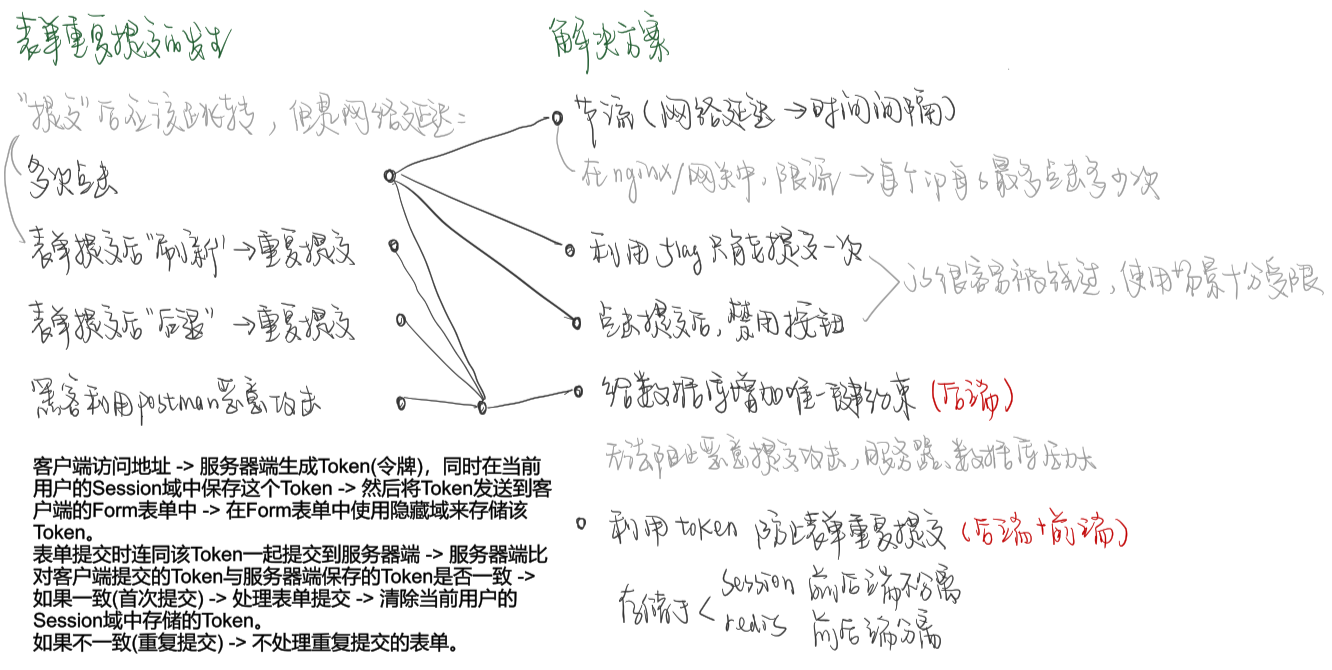 表单重复提交的发生
"提交"后应该跳转，但是网络延迟：
多次点击
表单提交后"刷新"→重复提交
表单提交后"后退"→重复提交
黑客利用postman恶意攻击
客户端访问地址 -> 服务器端生成Token(令牌)，同时在当前
用户的Session域中保存这个Token -> 然后将Token发送到客
户端的Form表单中 -> 在Form表单中使用隐藏域来存储该
Token。
表单提交时连同该Token一起提交到服务器端 -> 服务器端比
对客户端提交的Token与服务器端保存的Token是否一致 ->
如果一致(首次提交) -> 处理表单提交 -> 清除当前用户的
Session域中存储的Token。
如果不一致(重复提交) -> 不处理重复提交的表单。
解决方案
节流（网络延迟→时间间隔）
在nginx/网关中，限流→每个ip每s最多点击多少次
利用flag只能提交一次
js很容易被绕过，使用场景十分受限
点击提交后，禁用按钮
给数据库增加唯一键约束（后端）
无法阻止恶意提交攻击，服务器、数据库压力大
利用token 防止表单重复提交（后端+前端）
存储于
session 前后端不分离
redis 前后端分离